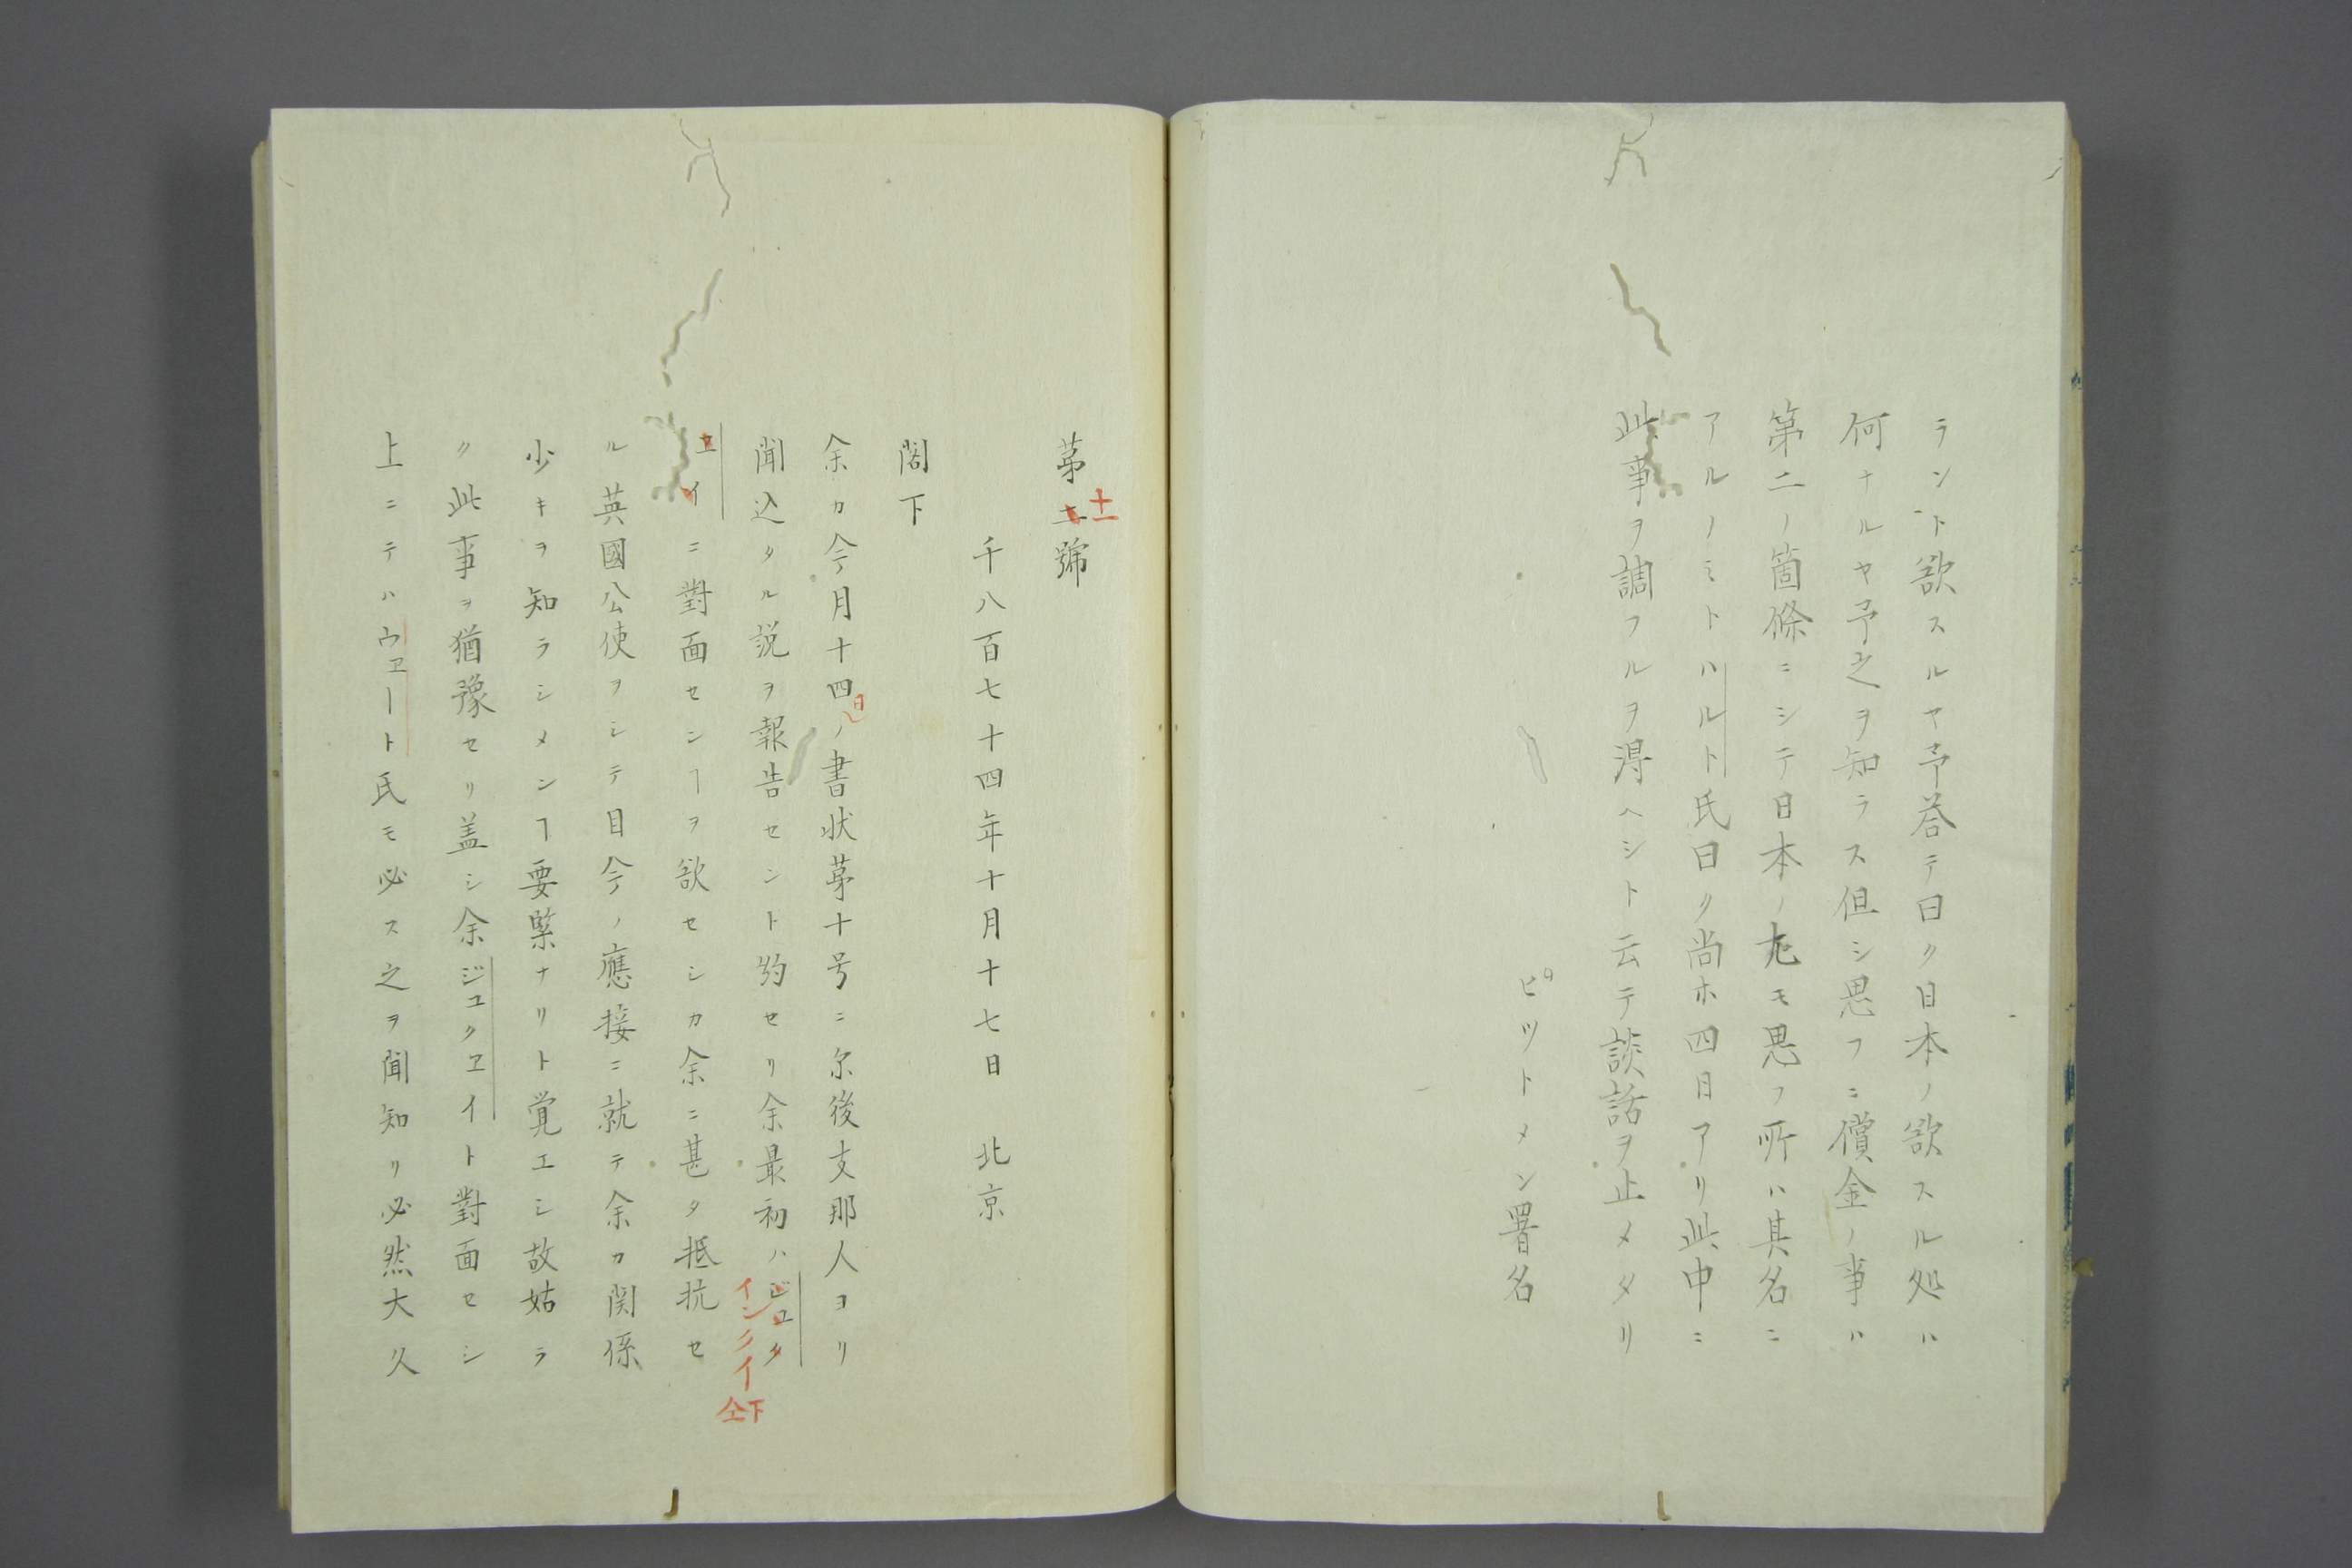 ラント欲スルヤ予答テ曰ク日本ノ欲スル処ハ
何ナルヤ予之ヲ知ラス但シ思フニ償金ノ事ハ
第二ノ箇條ニシテ日本ノ尤モ思フ所ハ其名ニ
アルノミトハルト氏曰ク尚ホ四日アリ此中ニ
此事ヲ調フルヲ得ヘシト云テ談話ヲ止メタリ
ピツトメン署名
第十一號
千八百七十四年十月十七日 北京
閣下
余カ今月十四日ノ書状第十号ニ尓後支那人ヨリ
聞込タル説ヲ報告セント約セリ余最初ハジユク
インクイ仝下
ヱイニ對面センヿヲ欲セシカ余ニ甚タ抵抗セ
ル英國公使ヲシテ目今ノ應接ニ就テ余カ関係
少キヲ知ラシメンヿ要緊ナリト覚エシ故姑ラ
ク此事ヲ猶豫セリ盖シ余ジユクヱイト對面セシ
上ニテハウヱート氏モ必ス之ヲ聞知リ必然大久